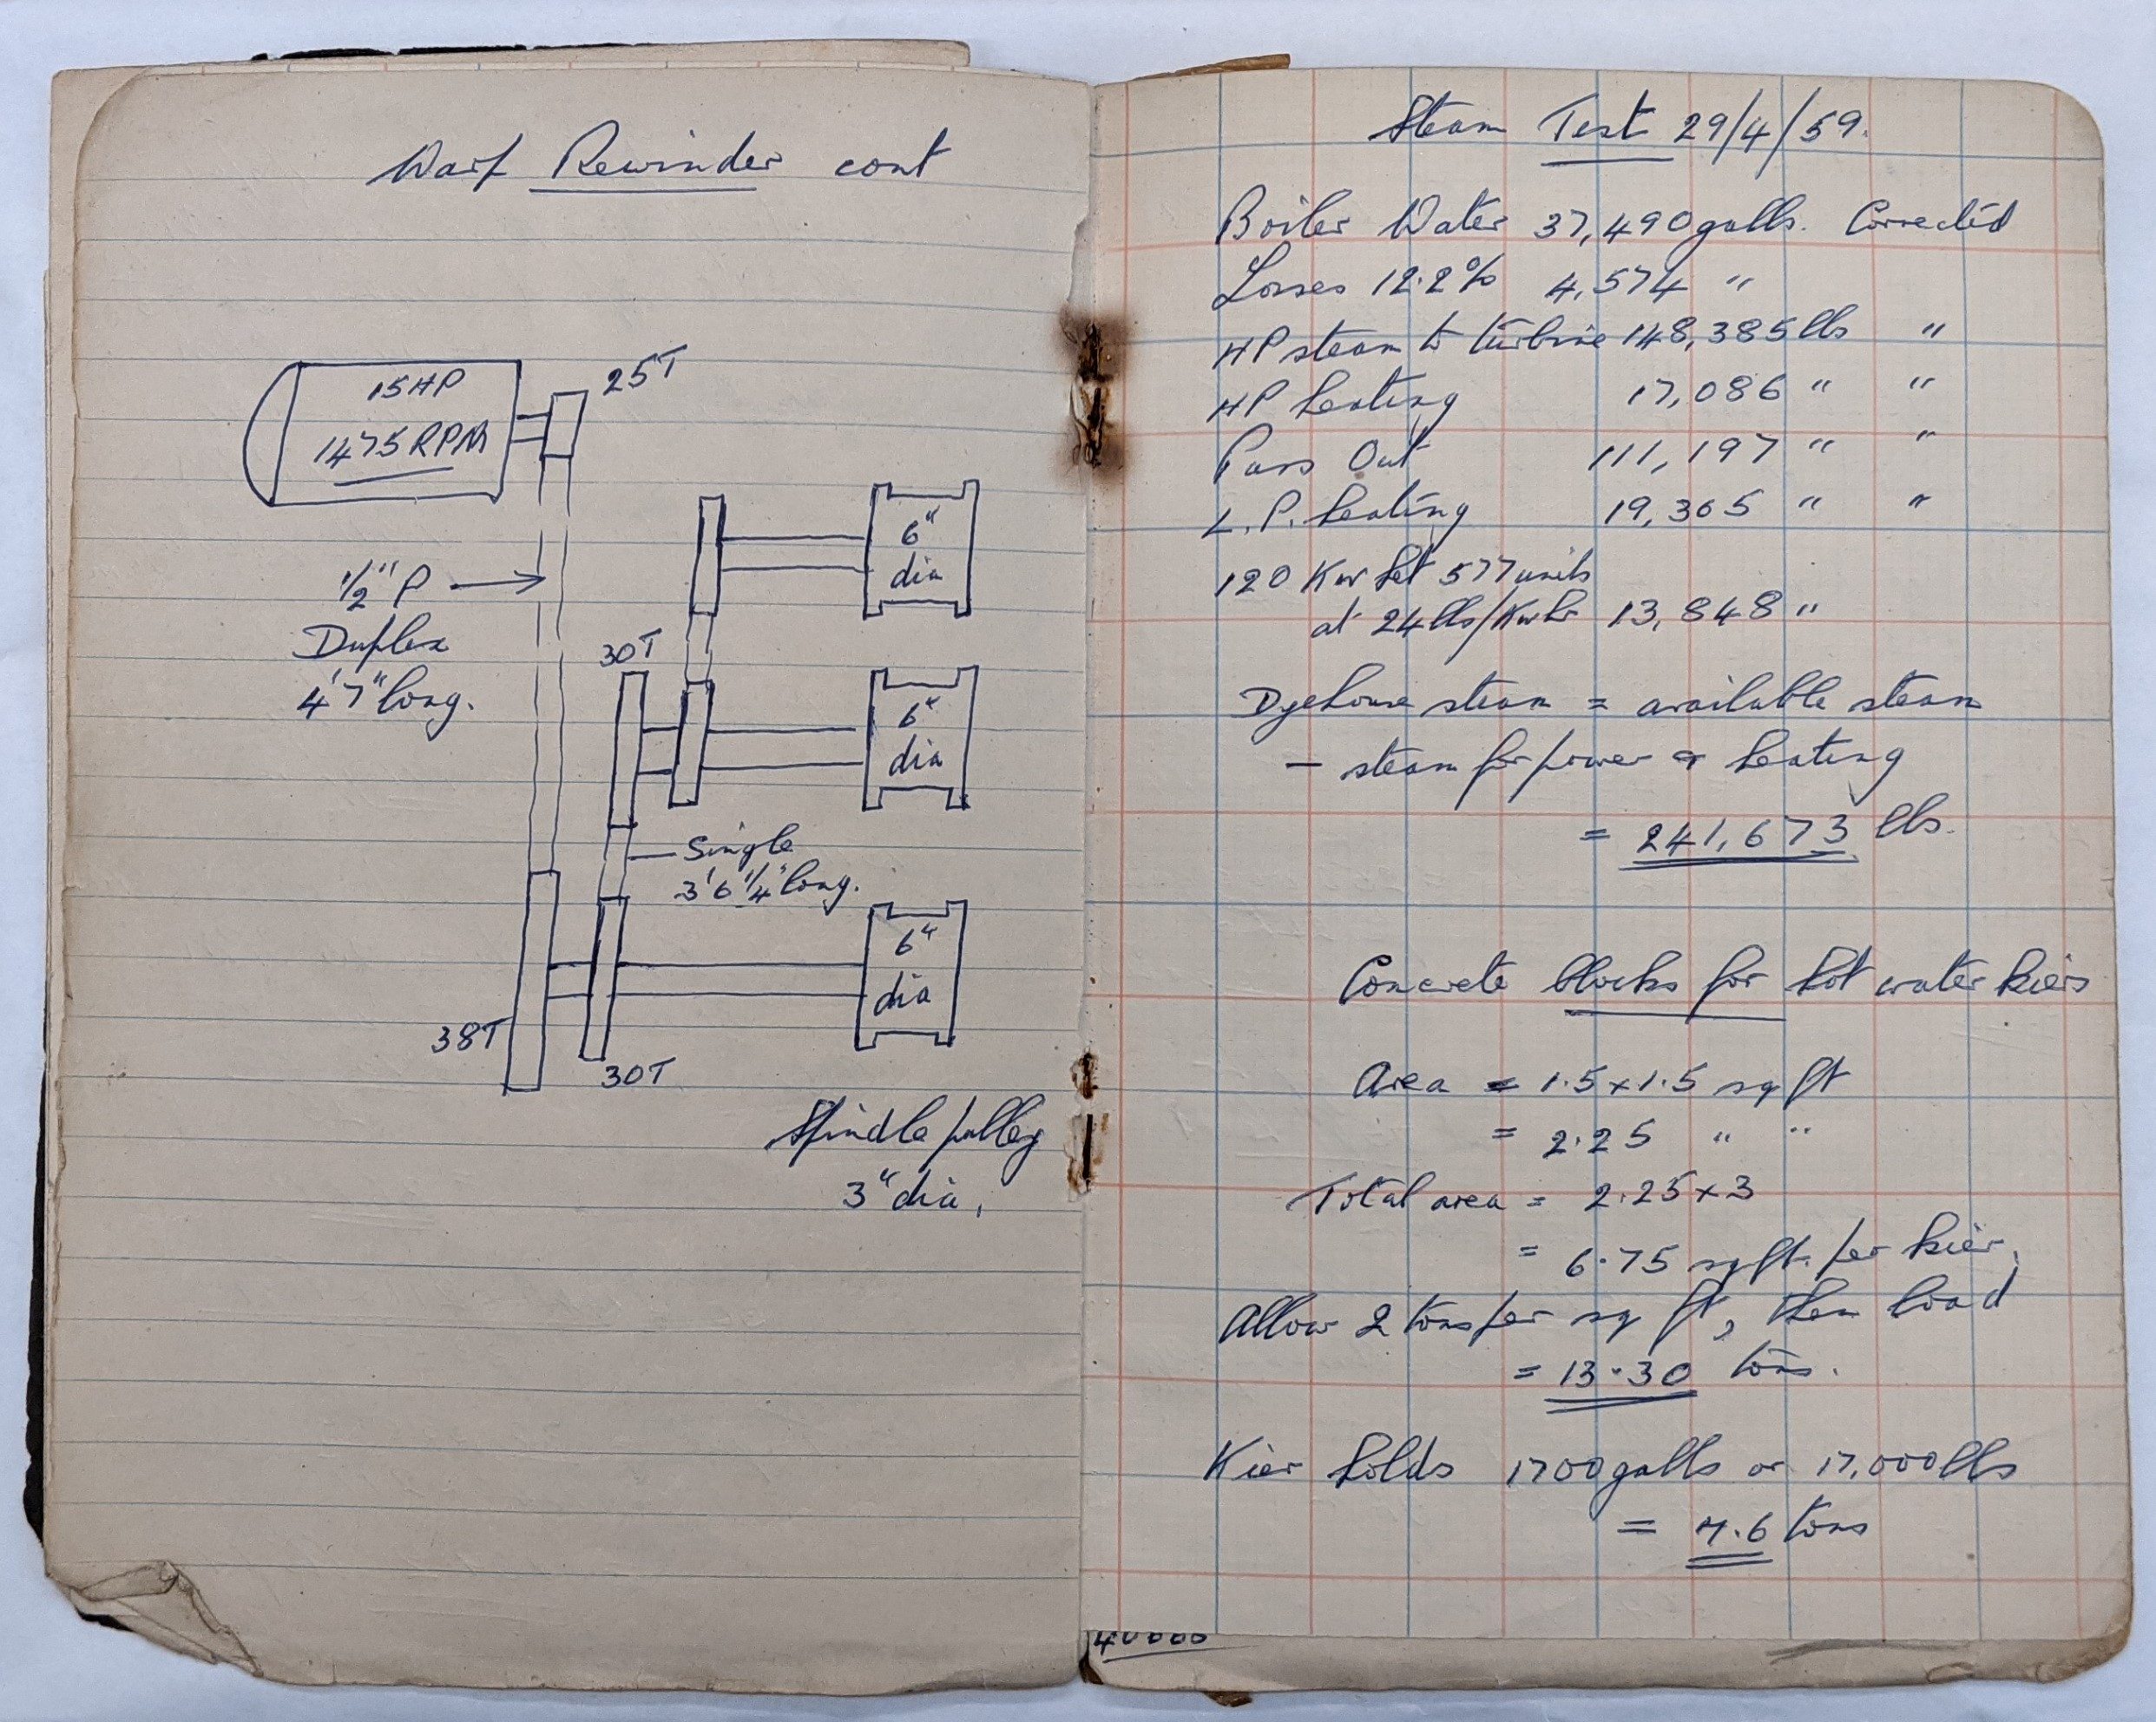 Warp Rewinder cont
15HP
1475RPM
25T
1/2" P
Duplex
4'7" long.
6"
dia
30T
6"
dia
Single
3'6 1/4" long.
6"
dia
38T
30T
Spindle pulley
3" dia.
Steam Test 29/4/59.
Boiler Water 37,490 galls. Corrected
Losses 12.2% 4,574 "
HP steam to turbine 148,385 lbs "
HP heating 17,086 " "
Pass Out 111,197 " "
L.P. heating 19,305 " "
120 Kw Set 577 units
at 24 lbs/Kwhr 13,848 "
Dyehouse steam = available steam
- steam for power & heating
= 241,673 lbs.
Concrete blocks for hot water kiers
Area = 1.5 x 1.5 sq ft
= 2.25 " "
Total area = 2.25 x 3
= 6.75 sq ft. per kier.
Allow 2 tons per sq ft, then load
= 13.30 tons.
Kier holds 1700 galls or 17,000 lbs
= 7.6 tons
40000